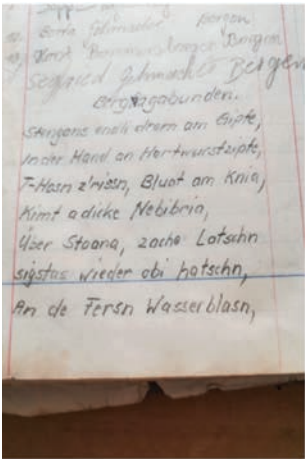 Bergen
Bergen
Siegfried Schmacht Bergen
Bergvagabunden.
Stengans endli drom am Gipfe,
In der Hand an Hortwurstzipfe,
T-Hosn z'rissn, Bluat am Knia,
Kimt a dicke Nebibria,
Über Stoana, zache Lotschn
sigstas wieder obi hatschn,
An de Fersn Wasserblasn,